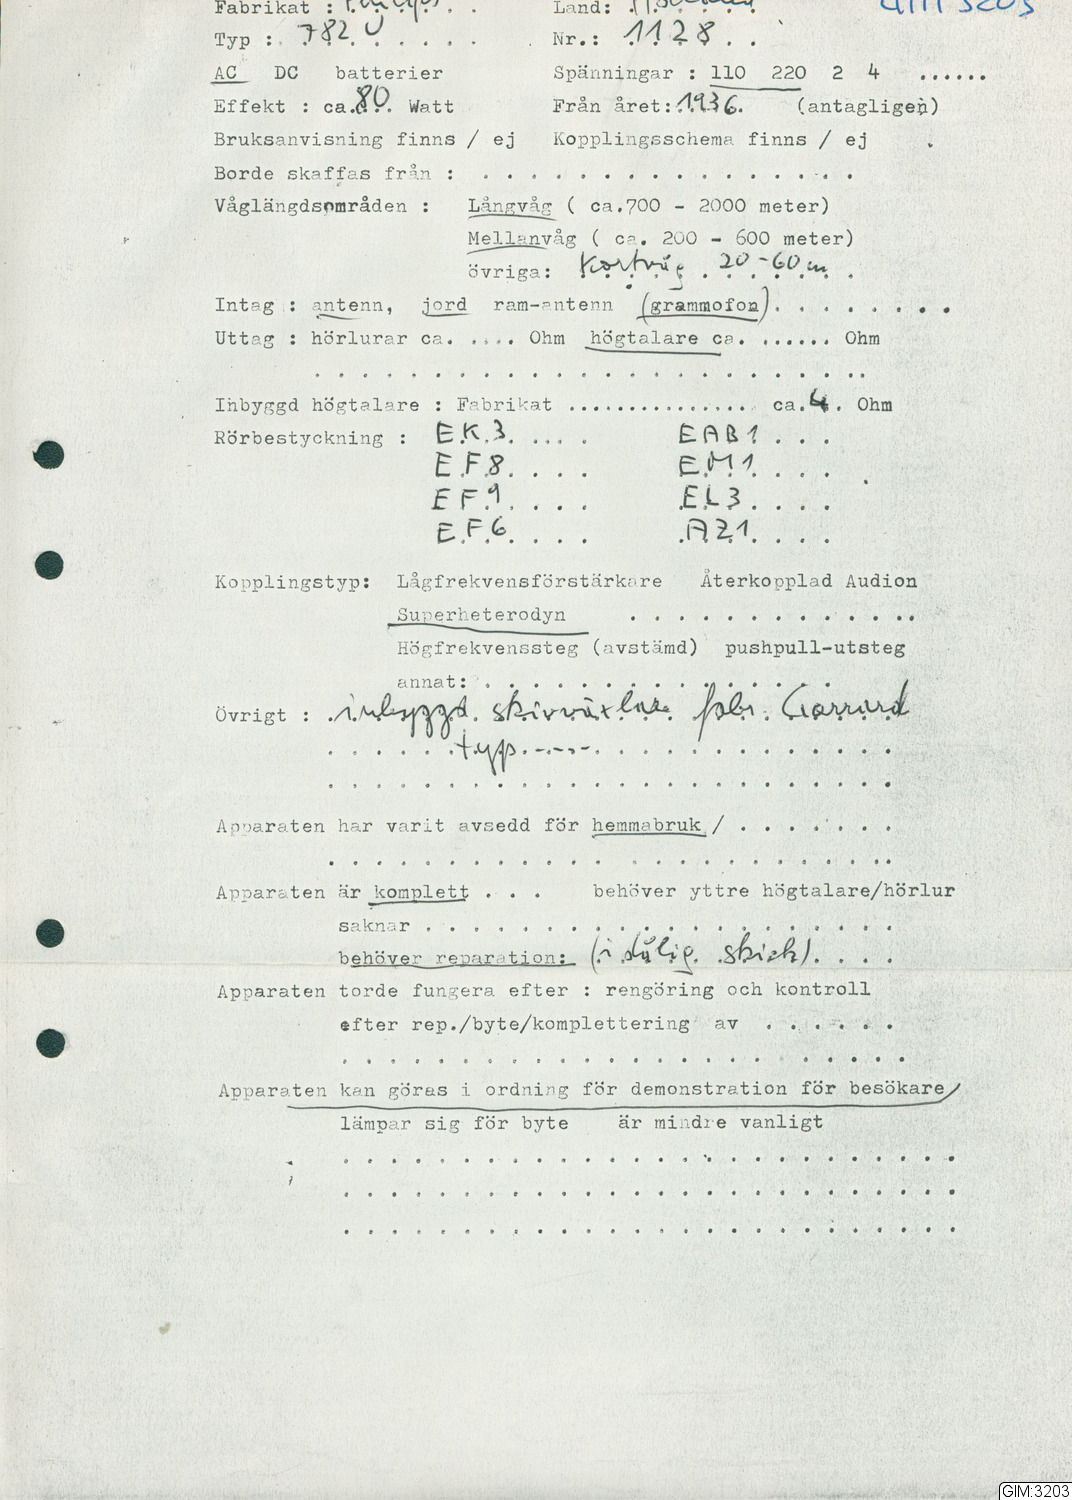 Fabrikat : Philips . . Land: Holland GIM 3203
Typ : 782 U . . . . . . Nr.: 1128 . .
AC DC batterier Spänningar : 110 220 2 4 ......
Effekt : ca.80. Watt Från året:.1936. (antagligen)
Bruksanvisning finns / ej Kopplingsschema finns / ej
Borde skaffas från : . . . . . . . . . . . . . . . .
Våglängdsområden : Långvåg ( ca.700 - 2000 meter)
Mellanvåg ( ca. 200 - 600 meter)
övriga: Kortvåg . 20-60 m .
Intag : antenn, jord ram-antenn (grammofon). . . . . . . .
Uttag : hörlurar ca. .... Ohm högtalare ca. ...... Ohm
. . . . . . . . . . . . . . . . . . . . . . . .
Inbyggd högtalare : Fabrikat ................ ca.4. Ohm
Rörbestyckning : E.K.3. .... EAB1 . . .
E.F.8. . . . E.M1. . . .
E F.9. . . . .EL3. . . .
E.F.6. . . . .AZ1. . . .
Kopplingstyp: Lågfrekvensförstärkare Återkopplad Audion
Superheterodyn . . . . . . . . . . . . .
Högfrekvenssteg (avstämd) pushpull-utsteg
annat: . . . . . . . . . . . . . . .
Övrigt : inbyggd skivväxlare fabr. Garrard
. . . . . . typ.----. . . . . . . . . . . . .
. . . . . . . . . . . . . . . . . . . . . . . .
Apparaten har varit avsedd för hemmabruk / . . . . . . .
. . . . . . . . . . . . . . . . . . . . . . . .
Apparaten är komplett . . . behöver yttre högtalare/hörlur
saknar . . . . . . . . . . . . . . . . . . . .
behöver reparation: (i dålig skick). . . .
Apparaten torde fungera efter : rengöring och kontroll
efter rep./byte/komplettering av . . . . . .
. . . . . . . . . . . . . . . . . . . . . . . .
Apparaten kan göras i ordning för demonstration för besökare/
lämpar sig för byte är mindre vanligt
. . . . . . . . . . . . . . . . . . . . . . . . . .
. . . . . . . . . . . . . . . . . . . . . . . . . .
. . . . . . . . . . . . . . . . . . . . . . . . . .
GIM:3203